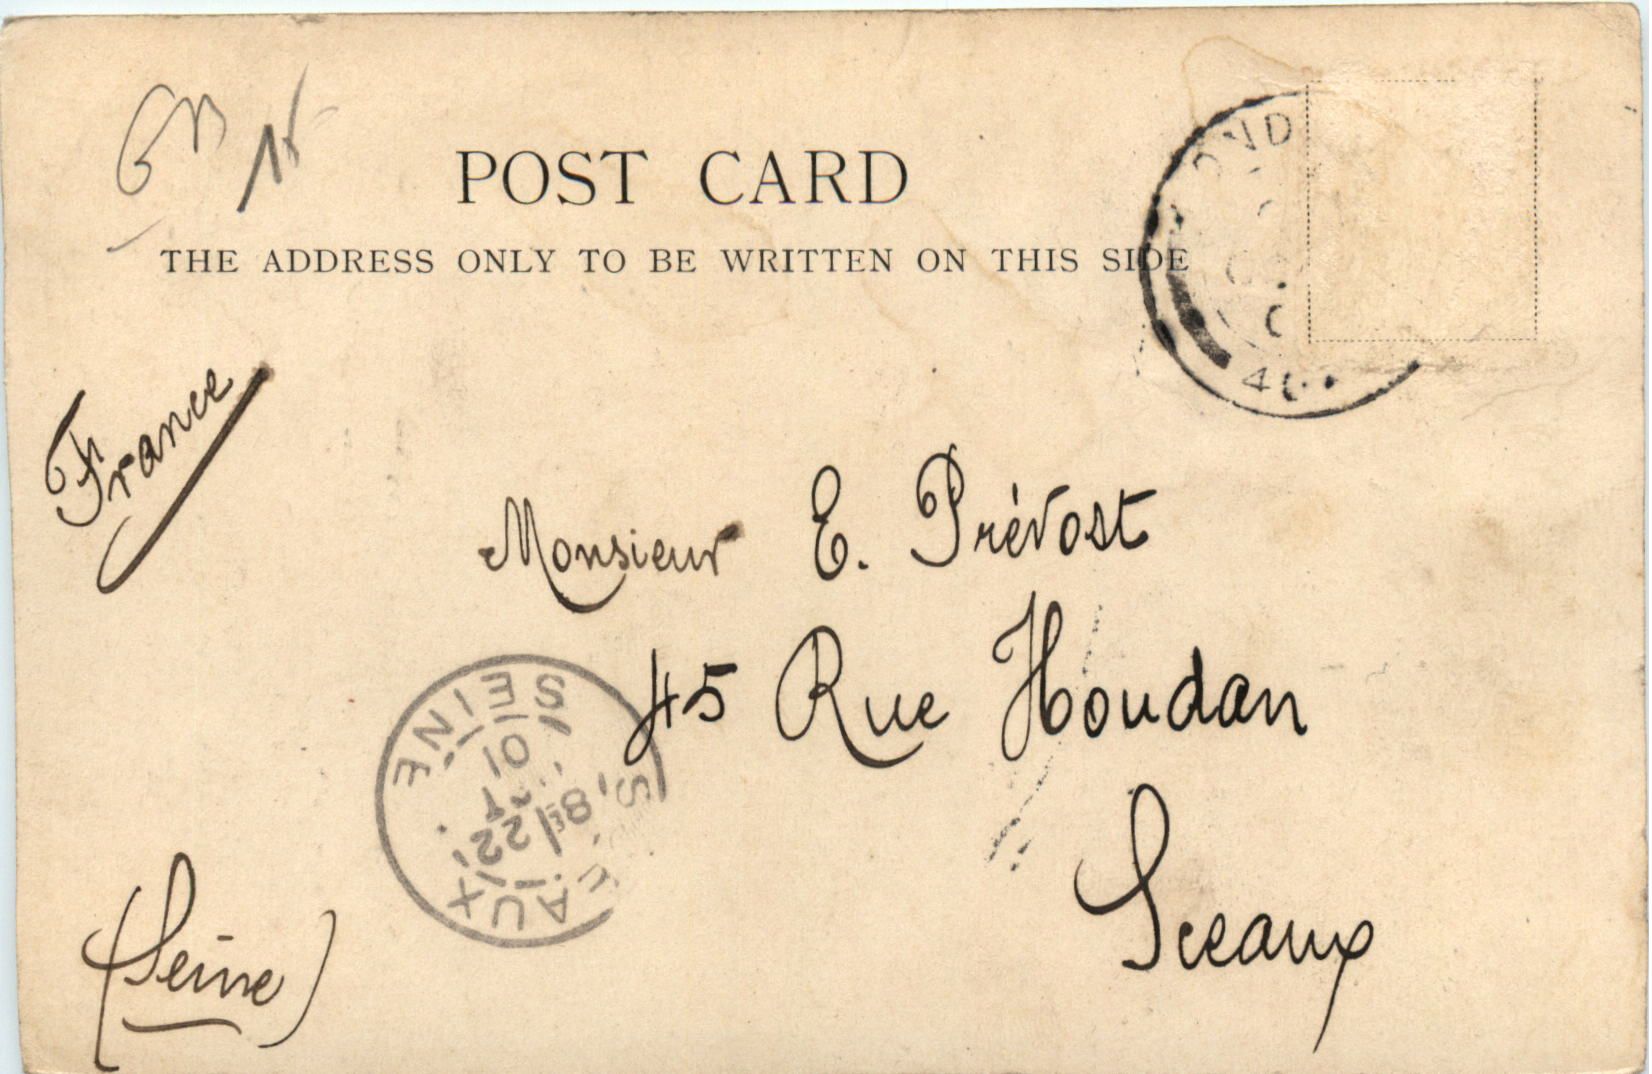 GB
POST CARD
THE ADDRESS ONLY TO BE WRITTEN ON THIS SIDE
OND
France
Monsieur E. Prévost
45 Rue Houdan
Sceaux
(Seine)
SEINE
22
01